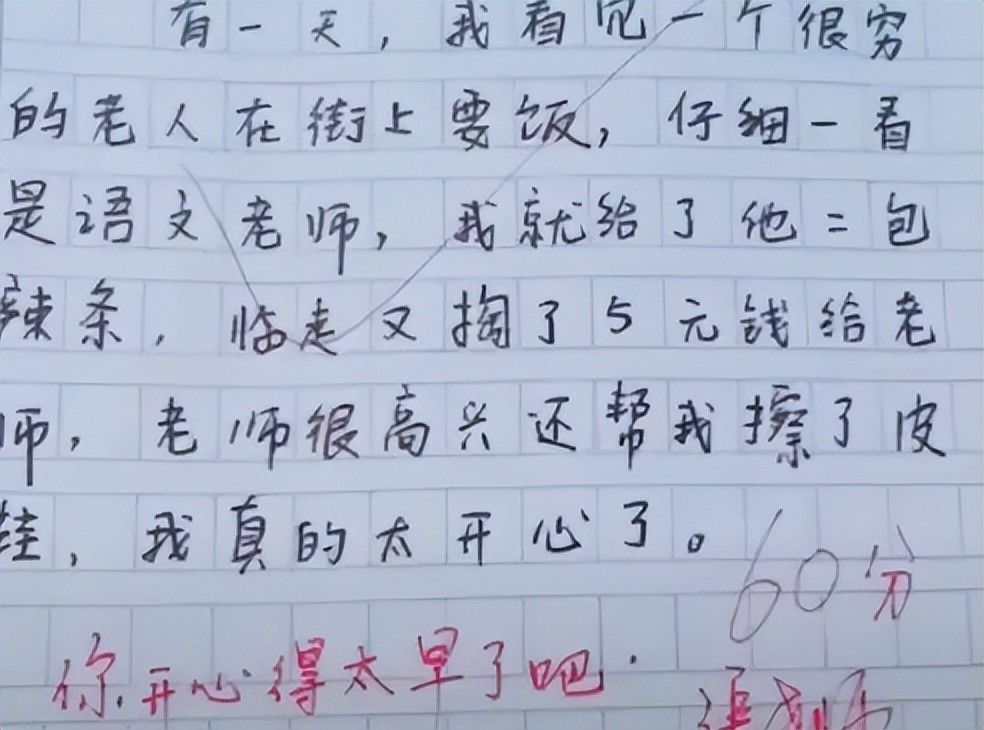 有一天，我看见一个很穷
的老人在街上要饭，仔细一看
是语文老师，我就给了他二包
辣条，临走又掏了5元钱给老
师，老师很高兴还帮我擦了皮
鞋，我真的太开心了。
60分
你开心得太早了吧.